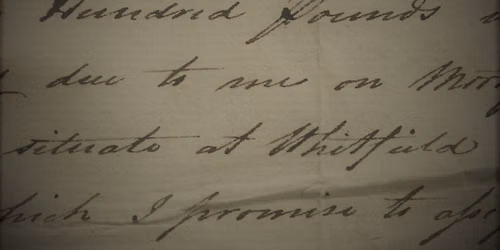 Hundred pounds
due to me on
situate at Whitfield
which I promise to